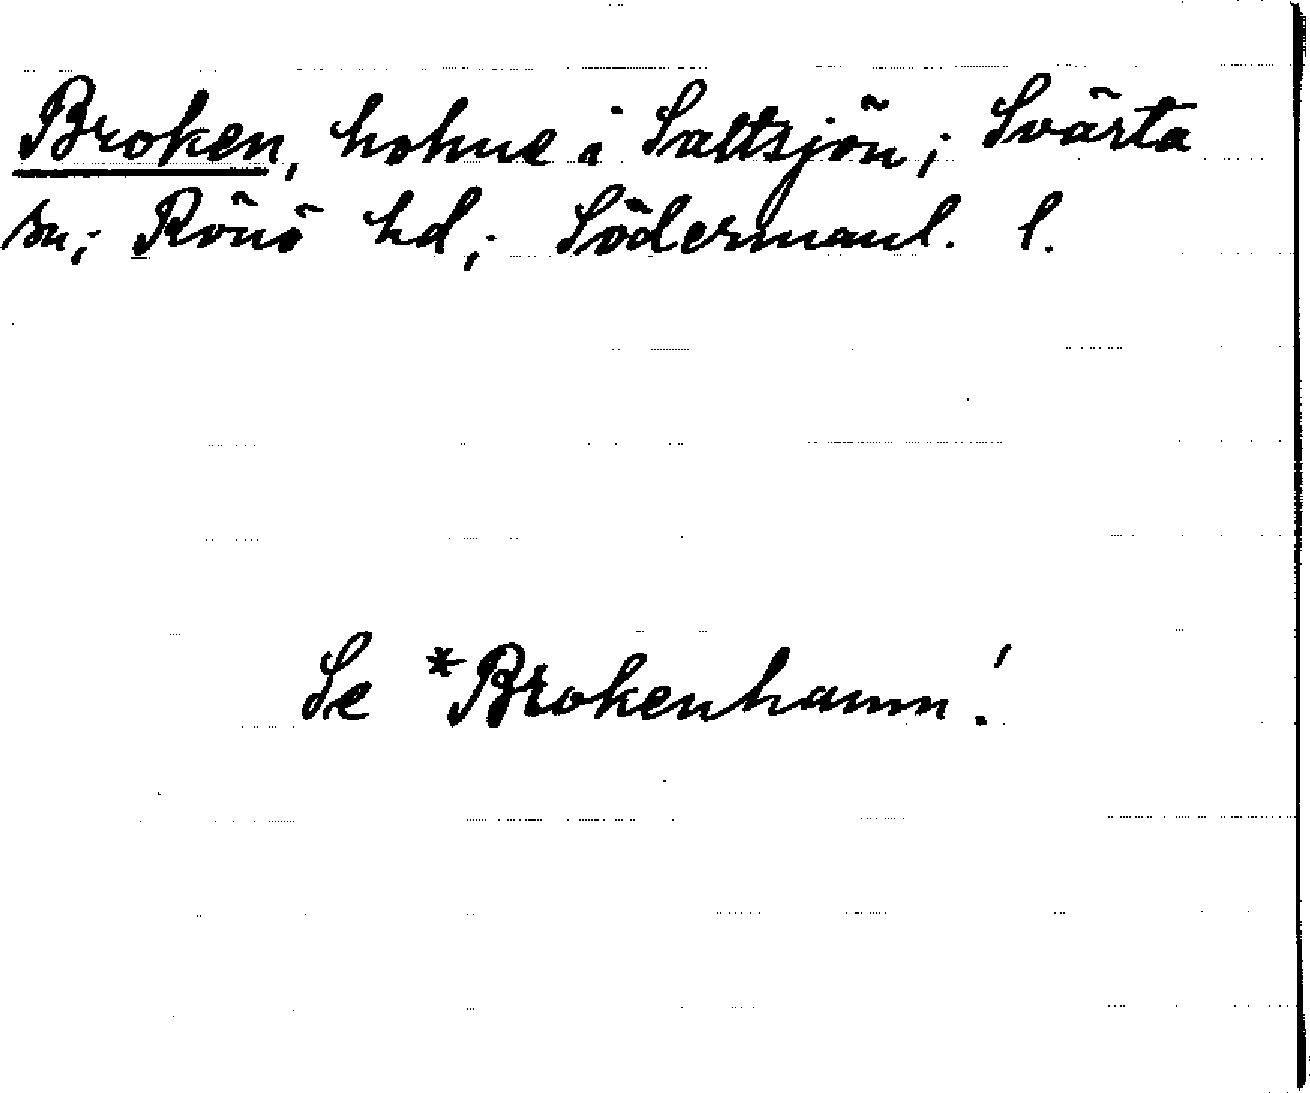 Broken, holme i Saltsjön; Svärta
sn; Rönö hd; Södermanl. l.
Se *Brokenhamn!